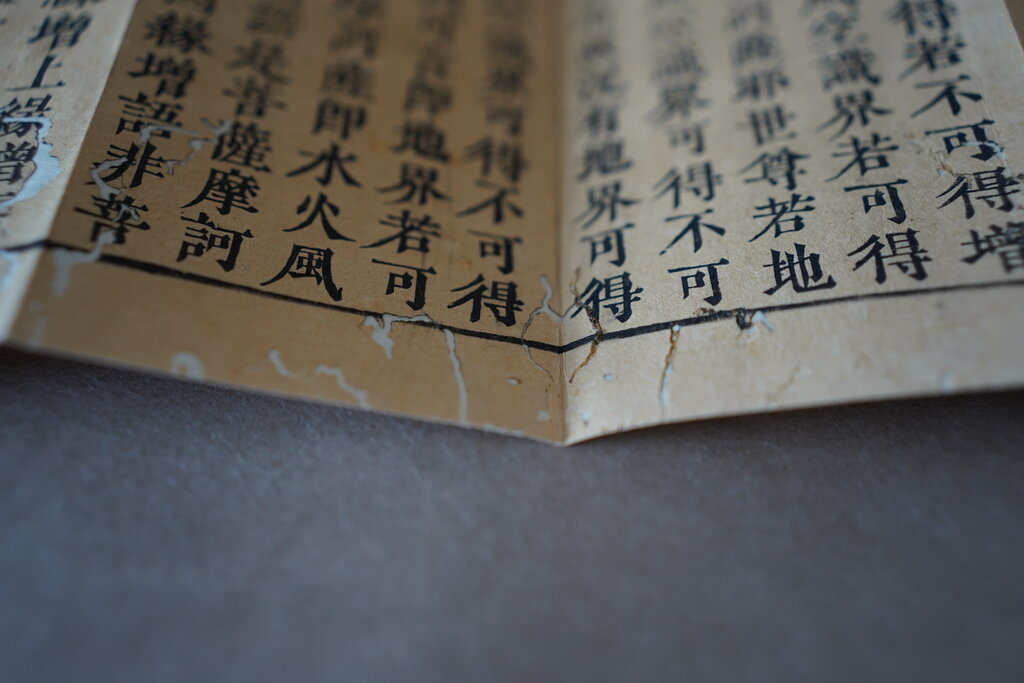 得若不可得增
空識界若可得
薩邪世尊若地
識界可得不可
況有地界可得
界可得不可得
言即地界若可
薩即水火風
是菩薩摩訶
緣增語非菩
增上緣增